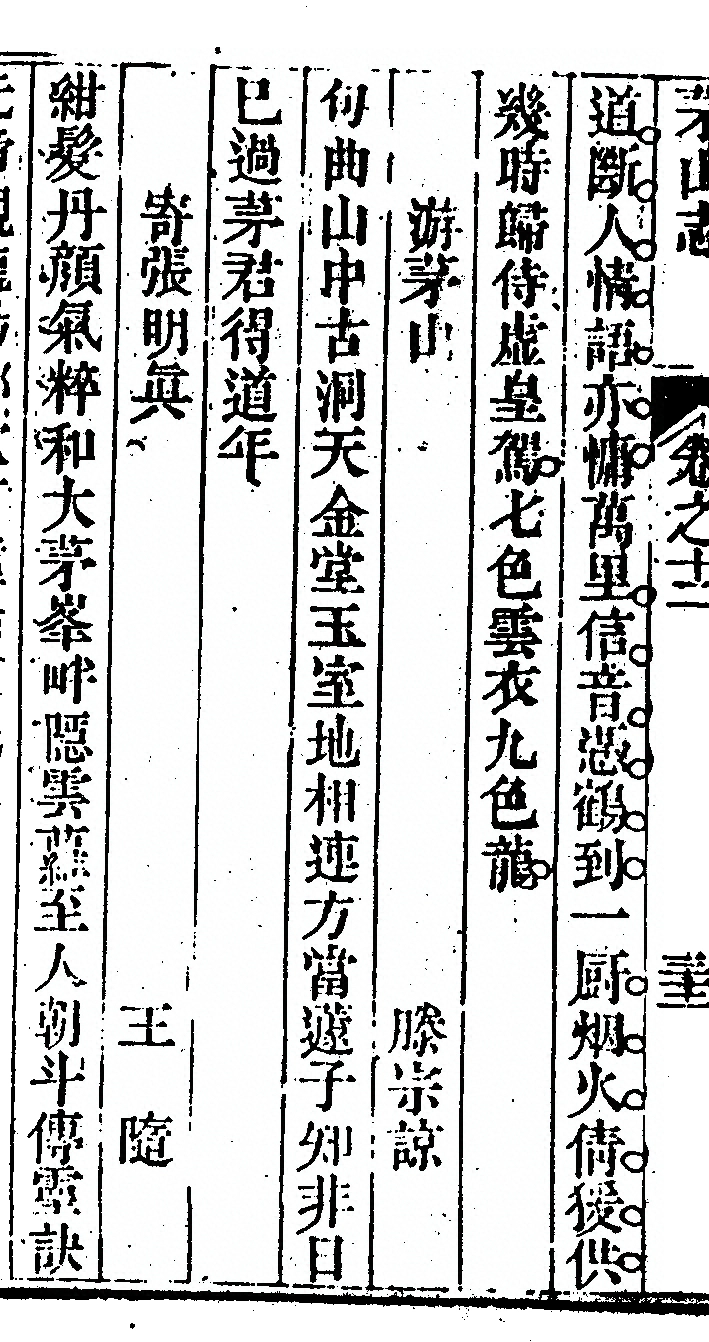 茅山志 卷之十二
道斷人情語亦慵萬里信音憑鶴到一厨烟火倩猨供
幾時歸侍虛皇駕七色雲衣九色龍
游茅山 滕宗諒
句曲山中古洞天金堂玉室地相連方當蘧子知非日
已過茅君得道年
寄張明眞 王隨
紺髮丹顔氣粹和大茅峯畔隱雲蘿至人朝斗傳靈訣